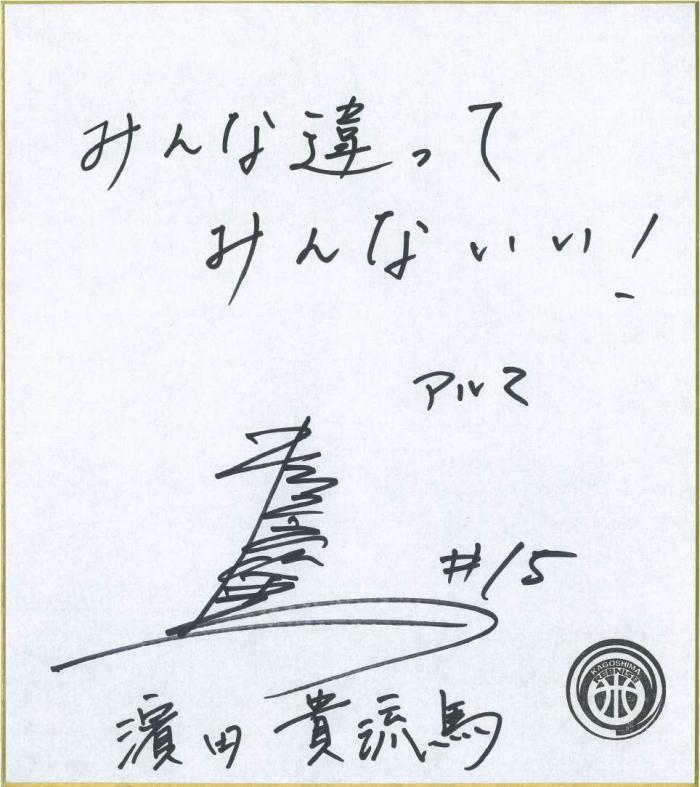 みんな違って
みんないい!
アルマ
#15
KAGOSHIMA
REBNISE
濵田 貴流馬